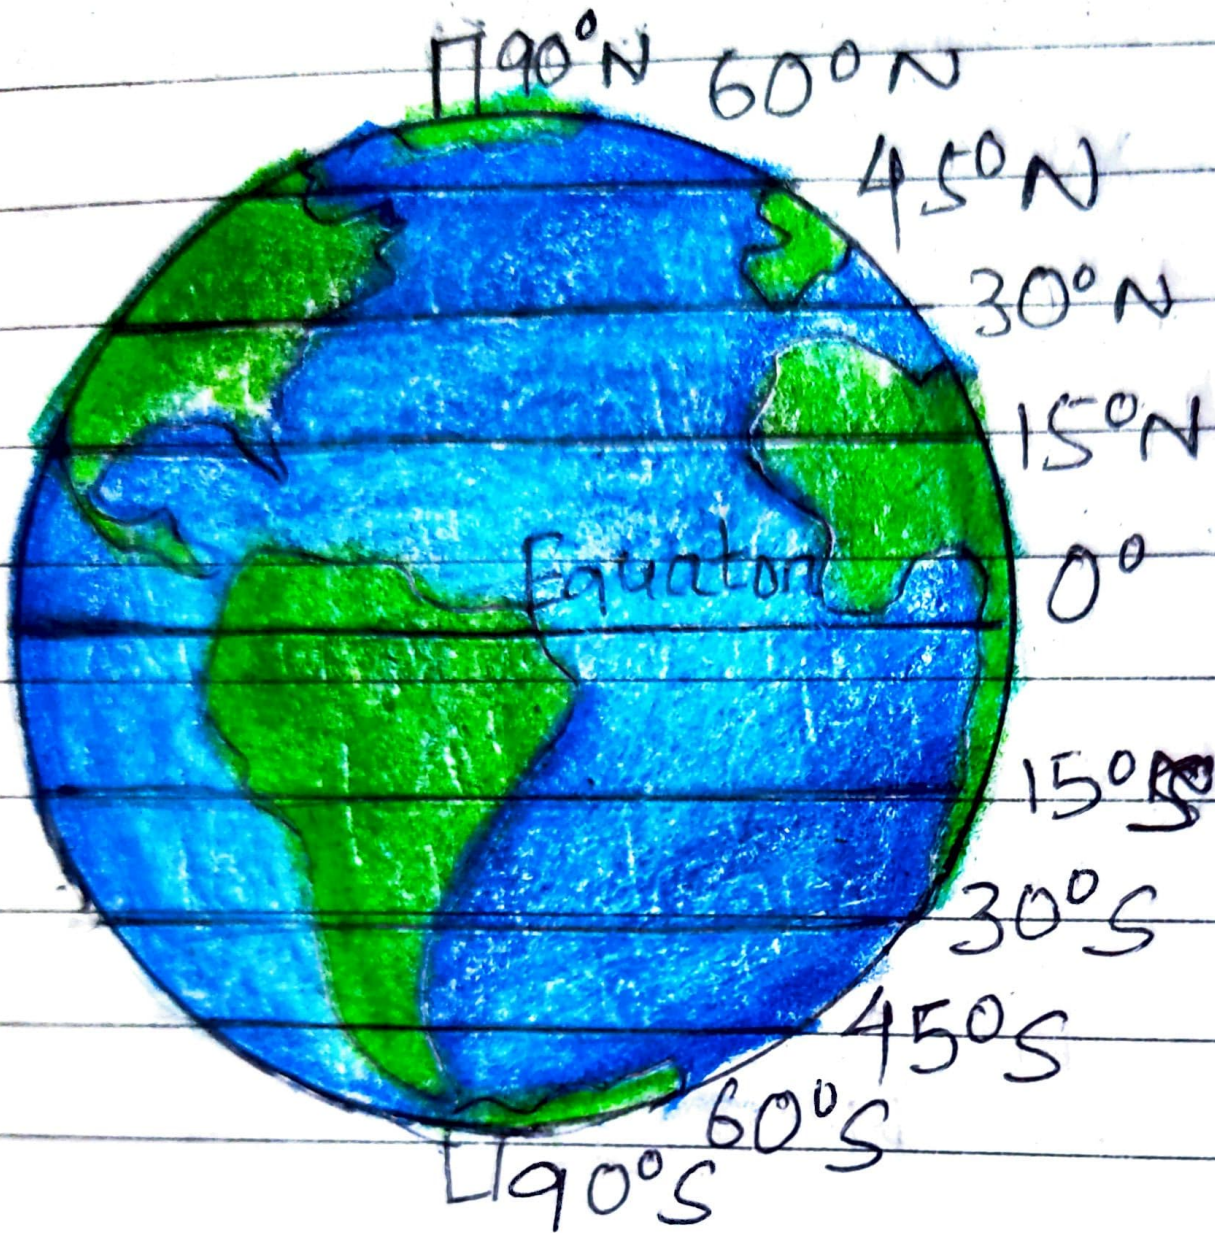 90°N 60°N
45°N
30°N
15°N
Equator
0°
15°S
30°S
45°S
60°S
90°S